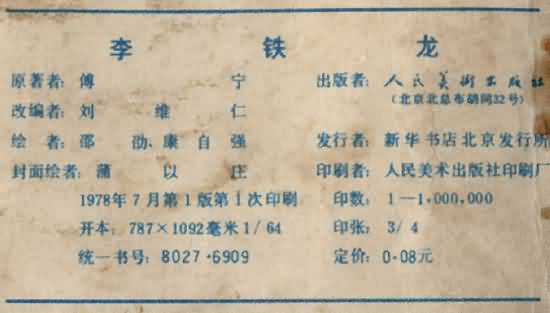 李铁龙
原著者：傅宁
改编者：刘维仁
绘者：邵劭、康自强
封面绘者：蒲以庄
1978年7月第1版第1次印刷
开本：787×1092毫米1/64
统一书号：8027·6909
出版者：人民美術出版社
（北京北总布胡同32号）
发行者：新华书店北京发行所
印刷者：人民美术出版社印刷厂
印数：1—1,000,000
印张：3/4
定价：0·08元